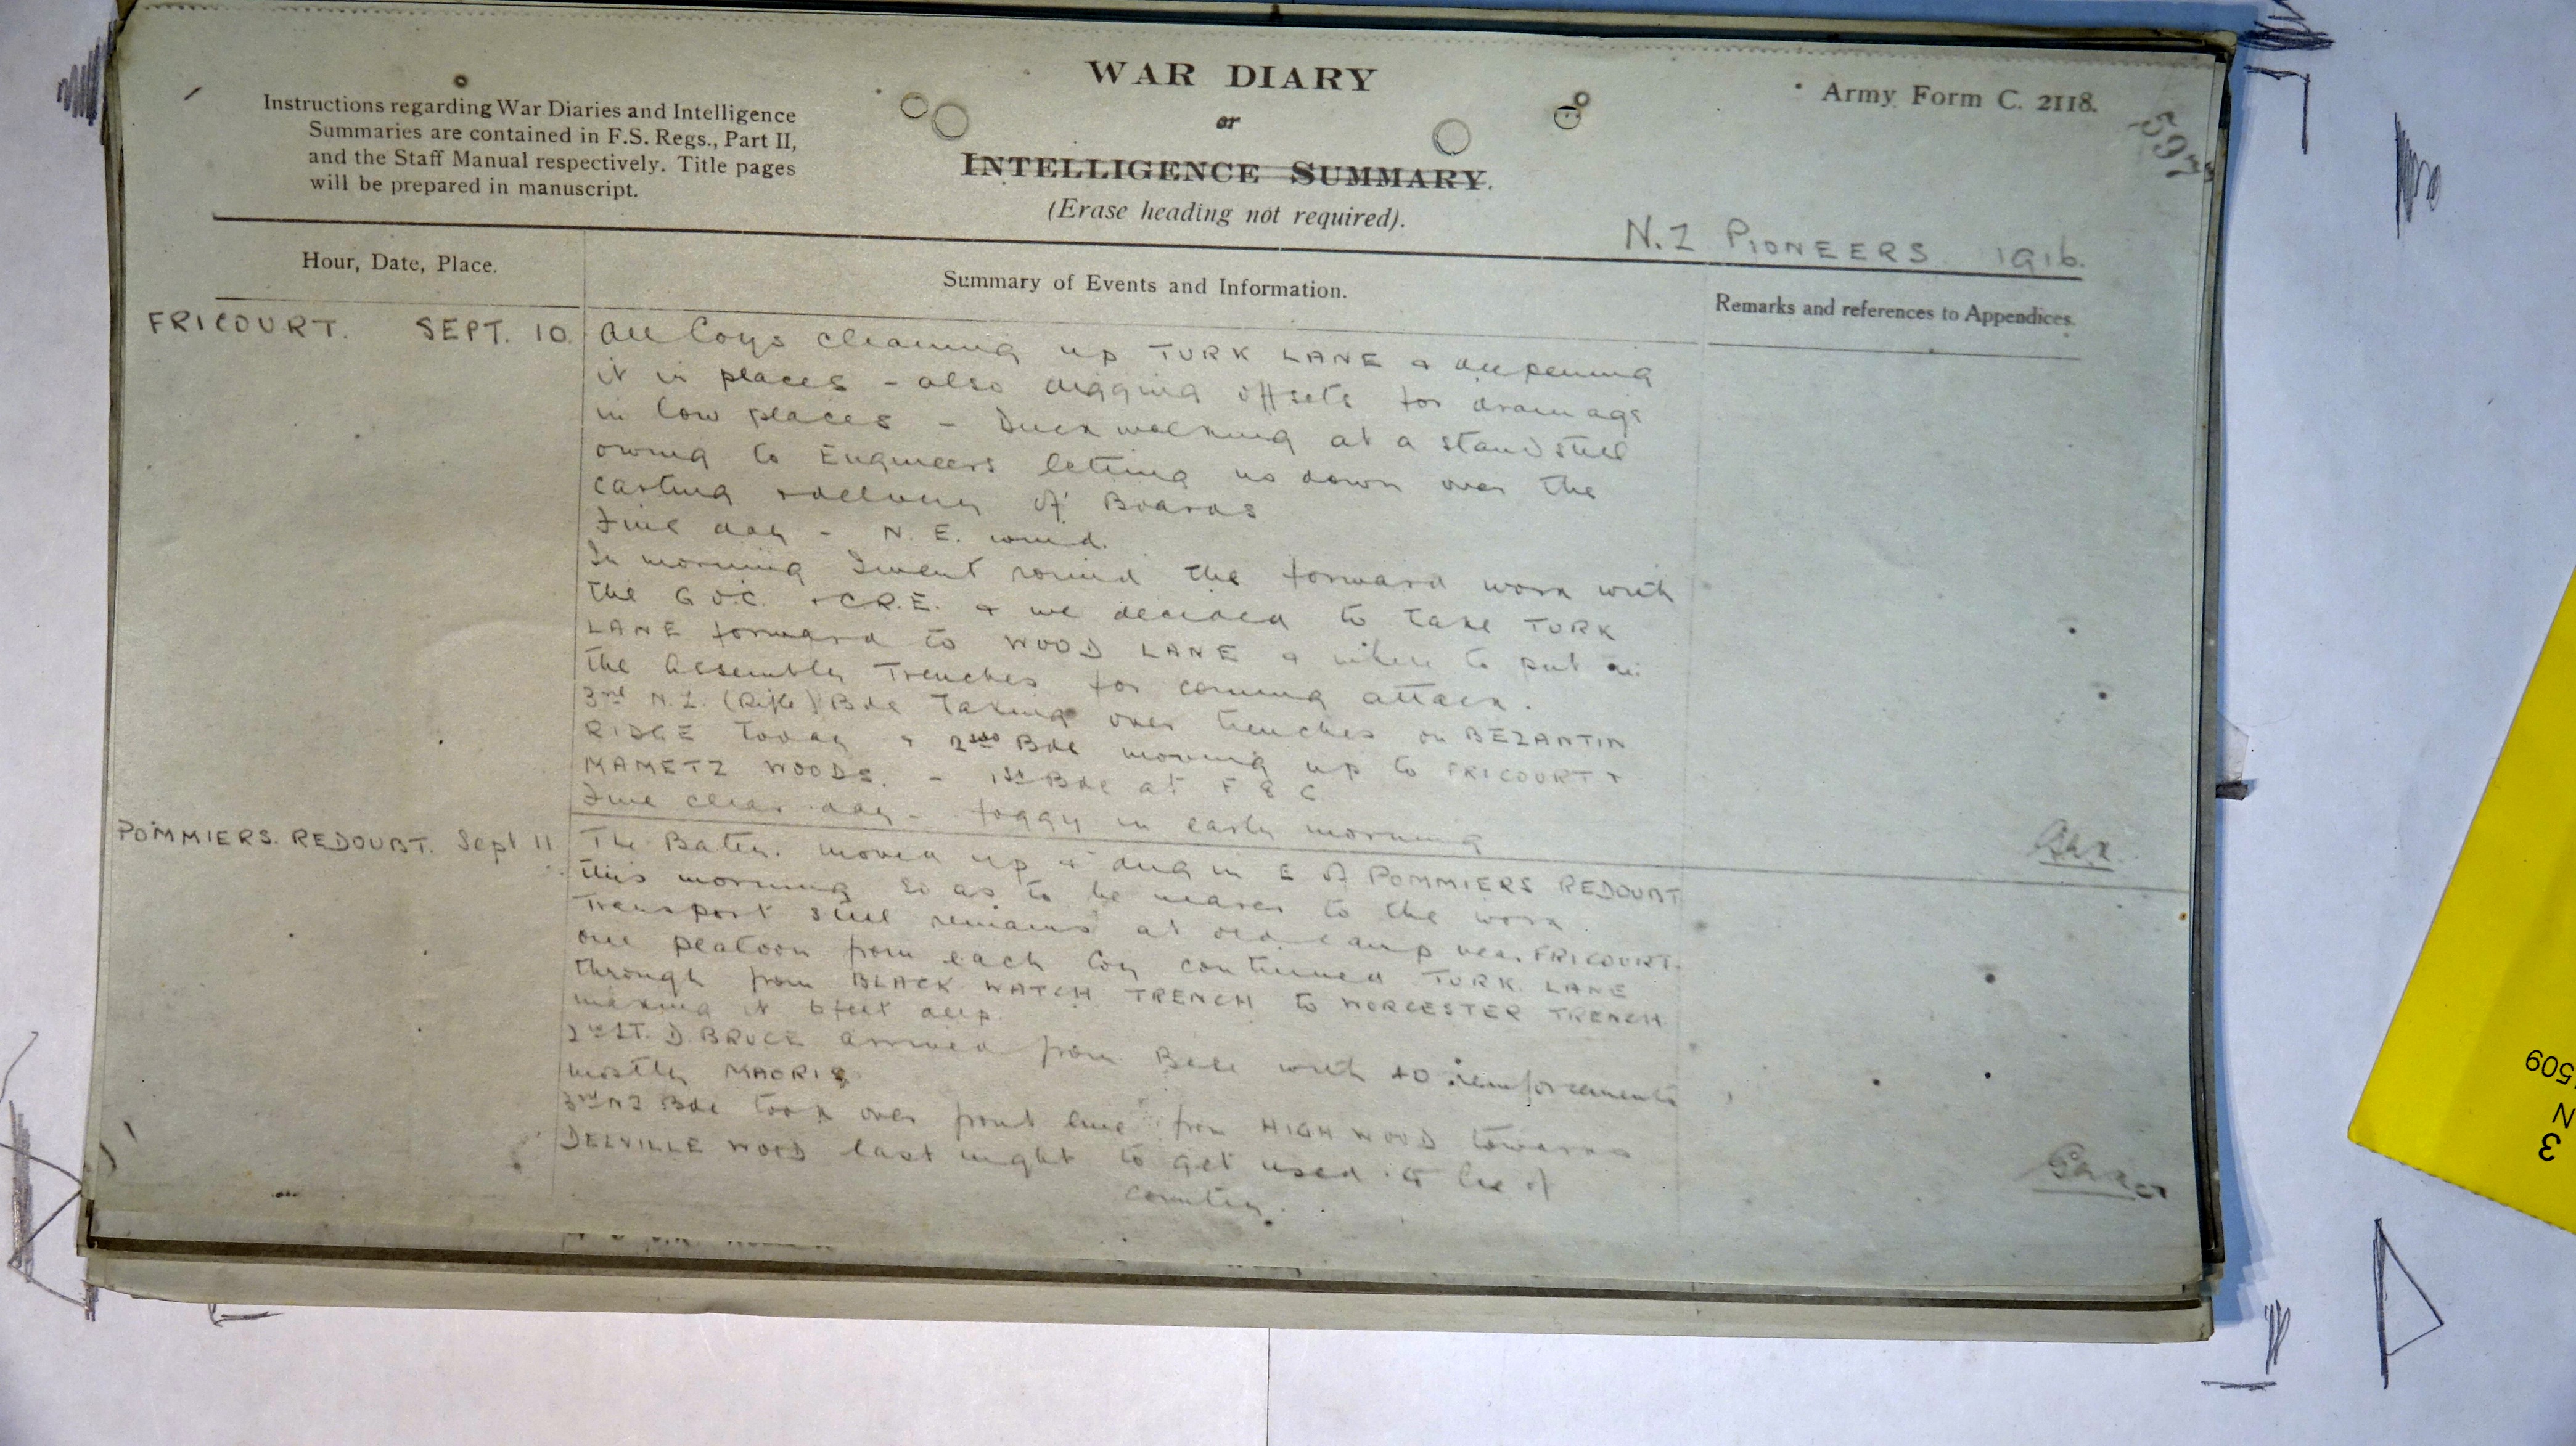 WAR DIARY
or
INTELLIGENCE SUMMARY.
(Erase heading not required).
Instructions regarding War Diaries and Intelligence
Summaries are contained in F.S. Regs., Part II,
and the Staff Manual respectively. Title pages
will be prepared in manuscript.
Army Form C. 2118.
N.Z PIONEERS 1916.
Hour, Date, Place.
Summary of Events and Information.
Remarks and references to Appendices.
FRICOURT. SEPT. 10.
All Coys cleaning up TURK LANE & deepening
it in places - also digging offsets for drainage
in low places - Duck walking at a standstill
owing to Engineers letting us down over the
carting & delivery of Boards
Fine day - N. E. wind.
In morning I went round the forward work with
the G.O.C. & C.R.E. & we decided to take TURK
LANE forward to WOOD LANE & where to put in
the Assembly Trenches for coming attack.
3rd N.Z. (Rifle) Bde taking over trenches on BEZANTIN
RIDGE today & 2nd Bde moving up to FRICOURT &
MAMETZ WOODS. - 1st Bde at F & C
Fine clear day - foggy in early morning
POMMIERS. REDOUBT. Sept 11
The Battn. moved up & dug in E of POMMIERS REDOUBT
this morning so as to be nearer to the work
Transport still remains at old camp near FRICOURT.
One platoon from each Coy continued TURK LANE
through from BLACK WATCH TRENCH to WORCESTER TRENCH
making it 6 feet deep.
2nd LT. D BRUCE arrived from Base with 40 reinforcements
mostly MAORIS
3rd NZ Bde took over front line from HIGH WOOD towards
DELVILLE WOOD last night to get used to lie of
country.
3
N
509